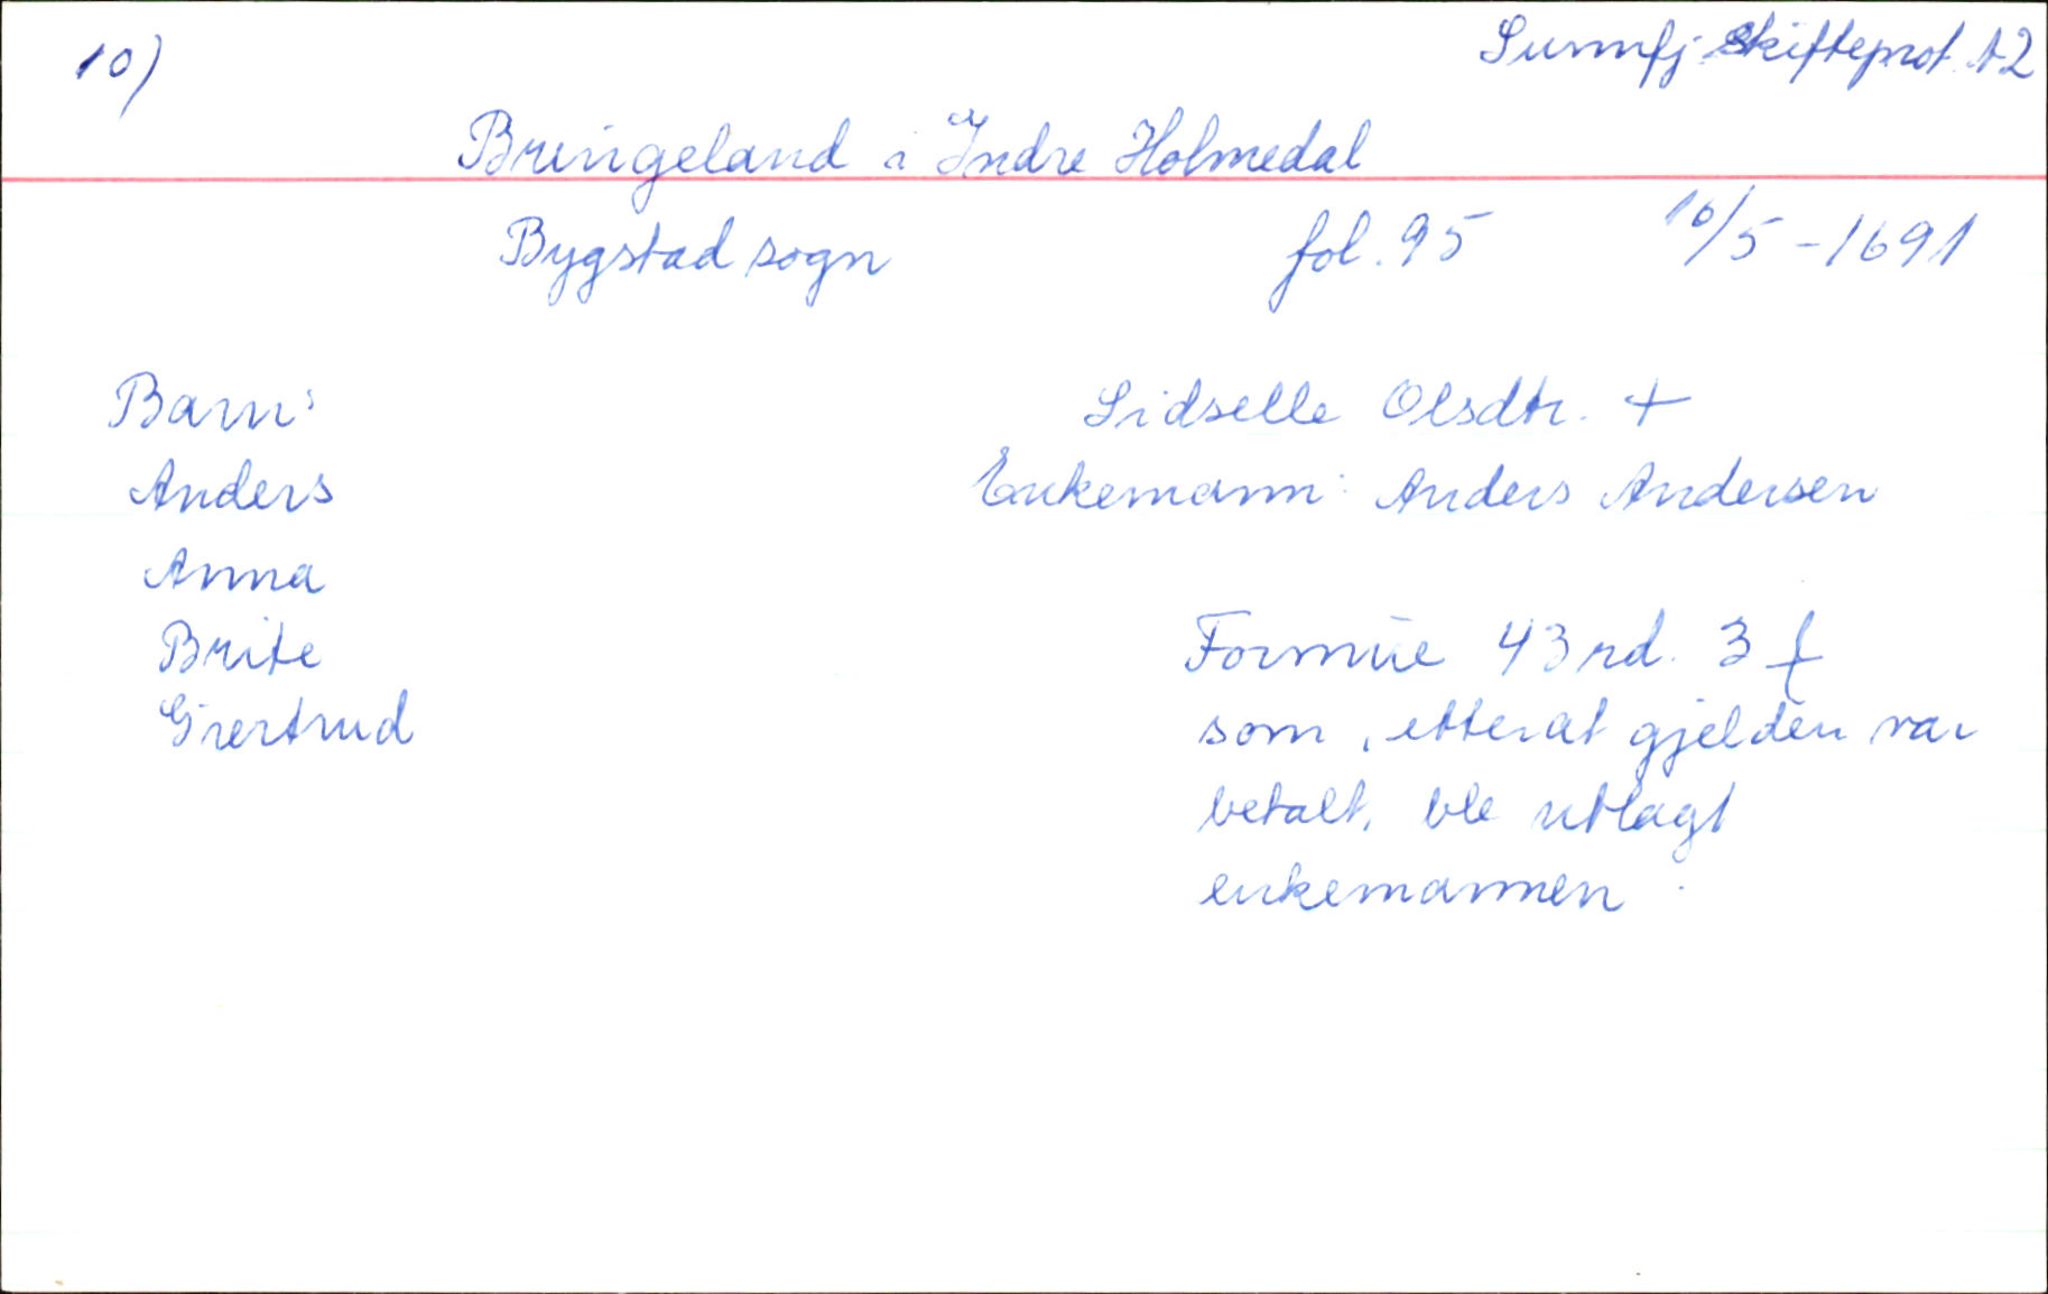 10)
Sunnfj. Skifteprot. A2
Bringeland i Indre Holmedal
Bygstad sogn fol. 95 16/5 - 1691
Barn: Lidselle Olsdtr. +
Anders Enkemann: Anders Andersen
Anna
Brite Formue 43 rd. 3 f
Giertrud som, etter at gjelden var
betalt, ble utlagt
enkemannen.